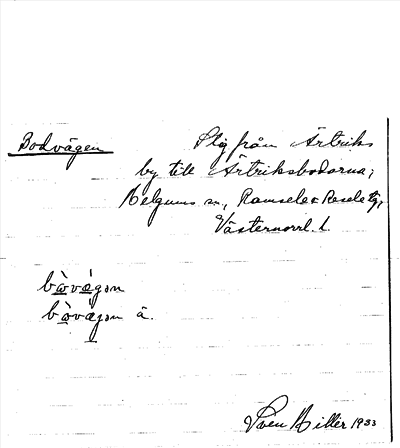 Bodvägen
Stig från Ärtriks
by till Ärtriksbodarna,
Helgums sn, Ramsele & Resele tg,
Västernorrl. l.
bòvǽgən
bòvægən ä.
Sven Hiller 1933